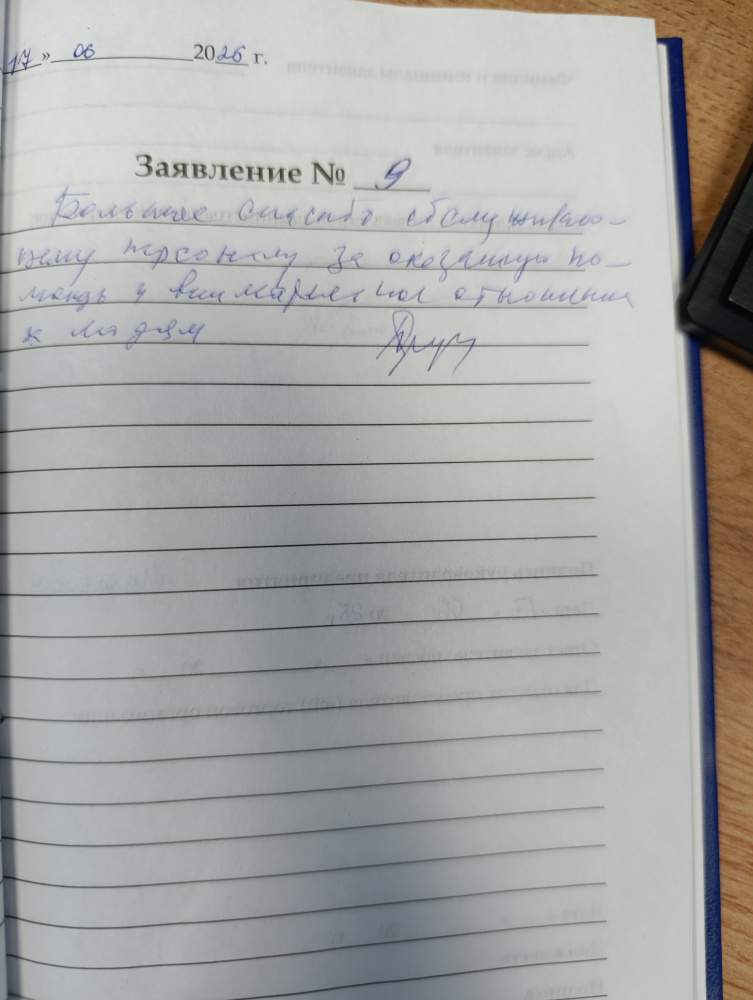 17 » 06 2026 г.
Заявление № 9
Большое спасибо обслуживаю-
щему персоналу за оказанную по-
мощь и внимательное отношение
к людям